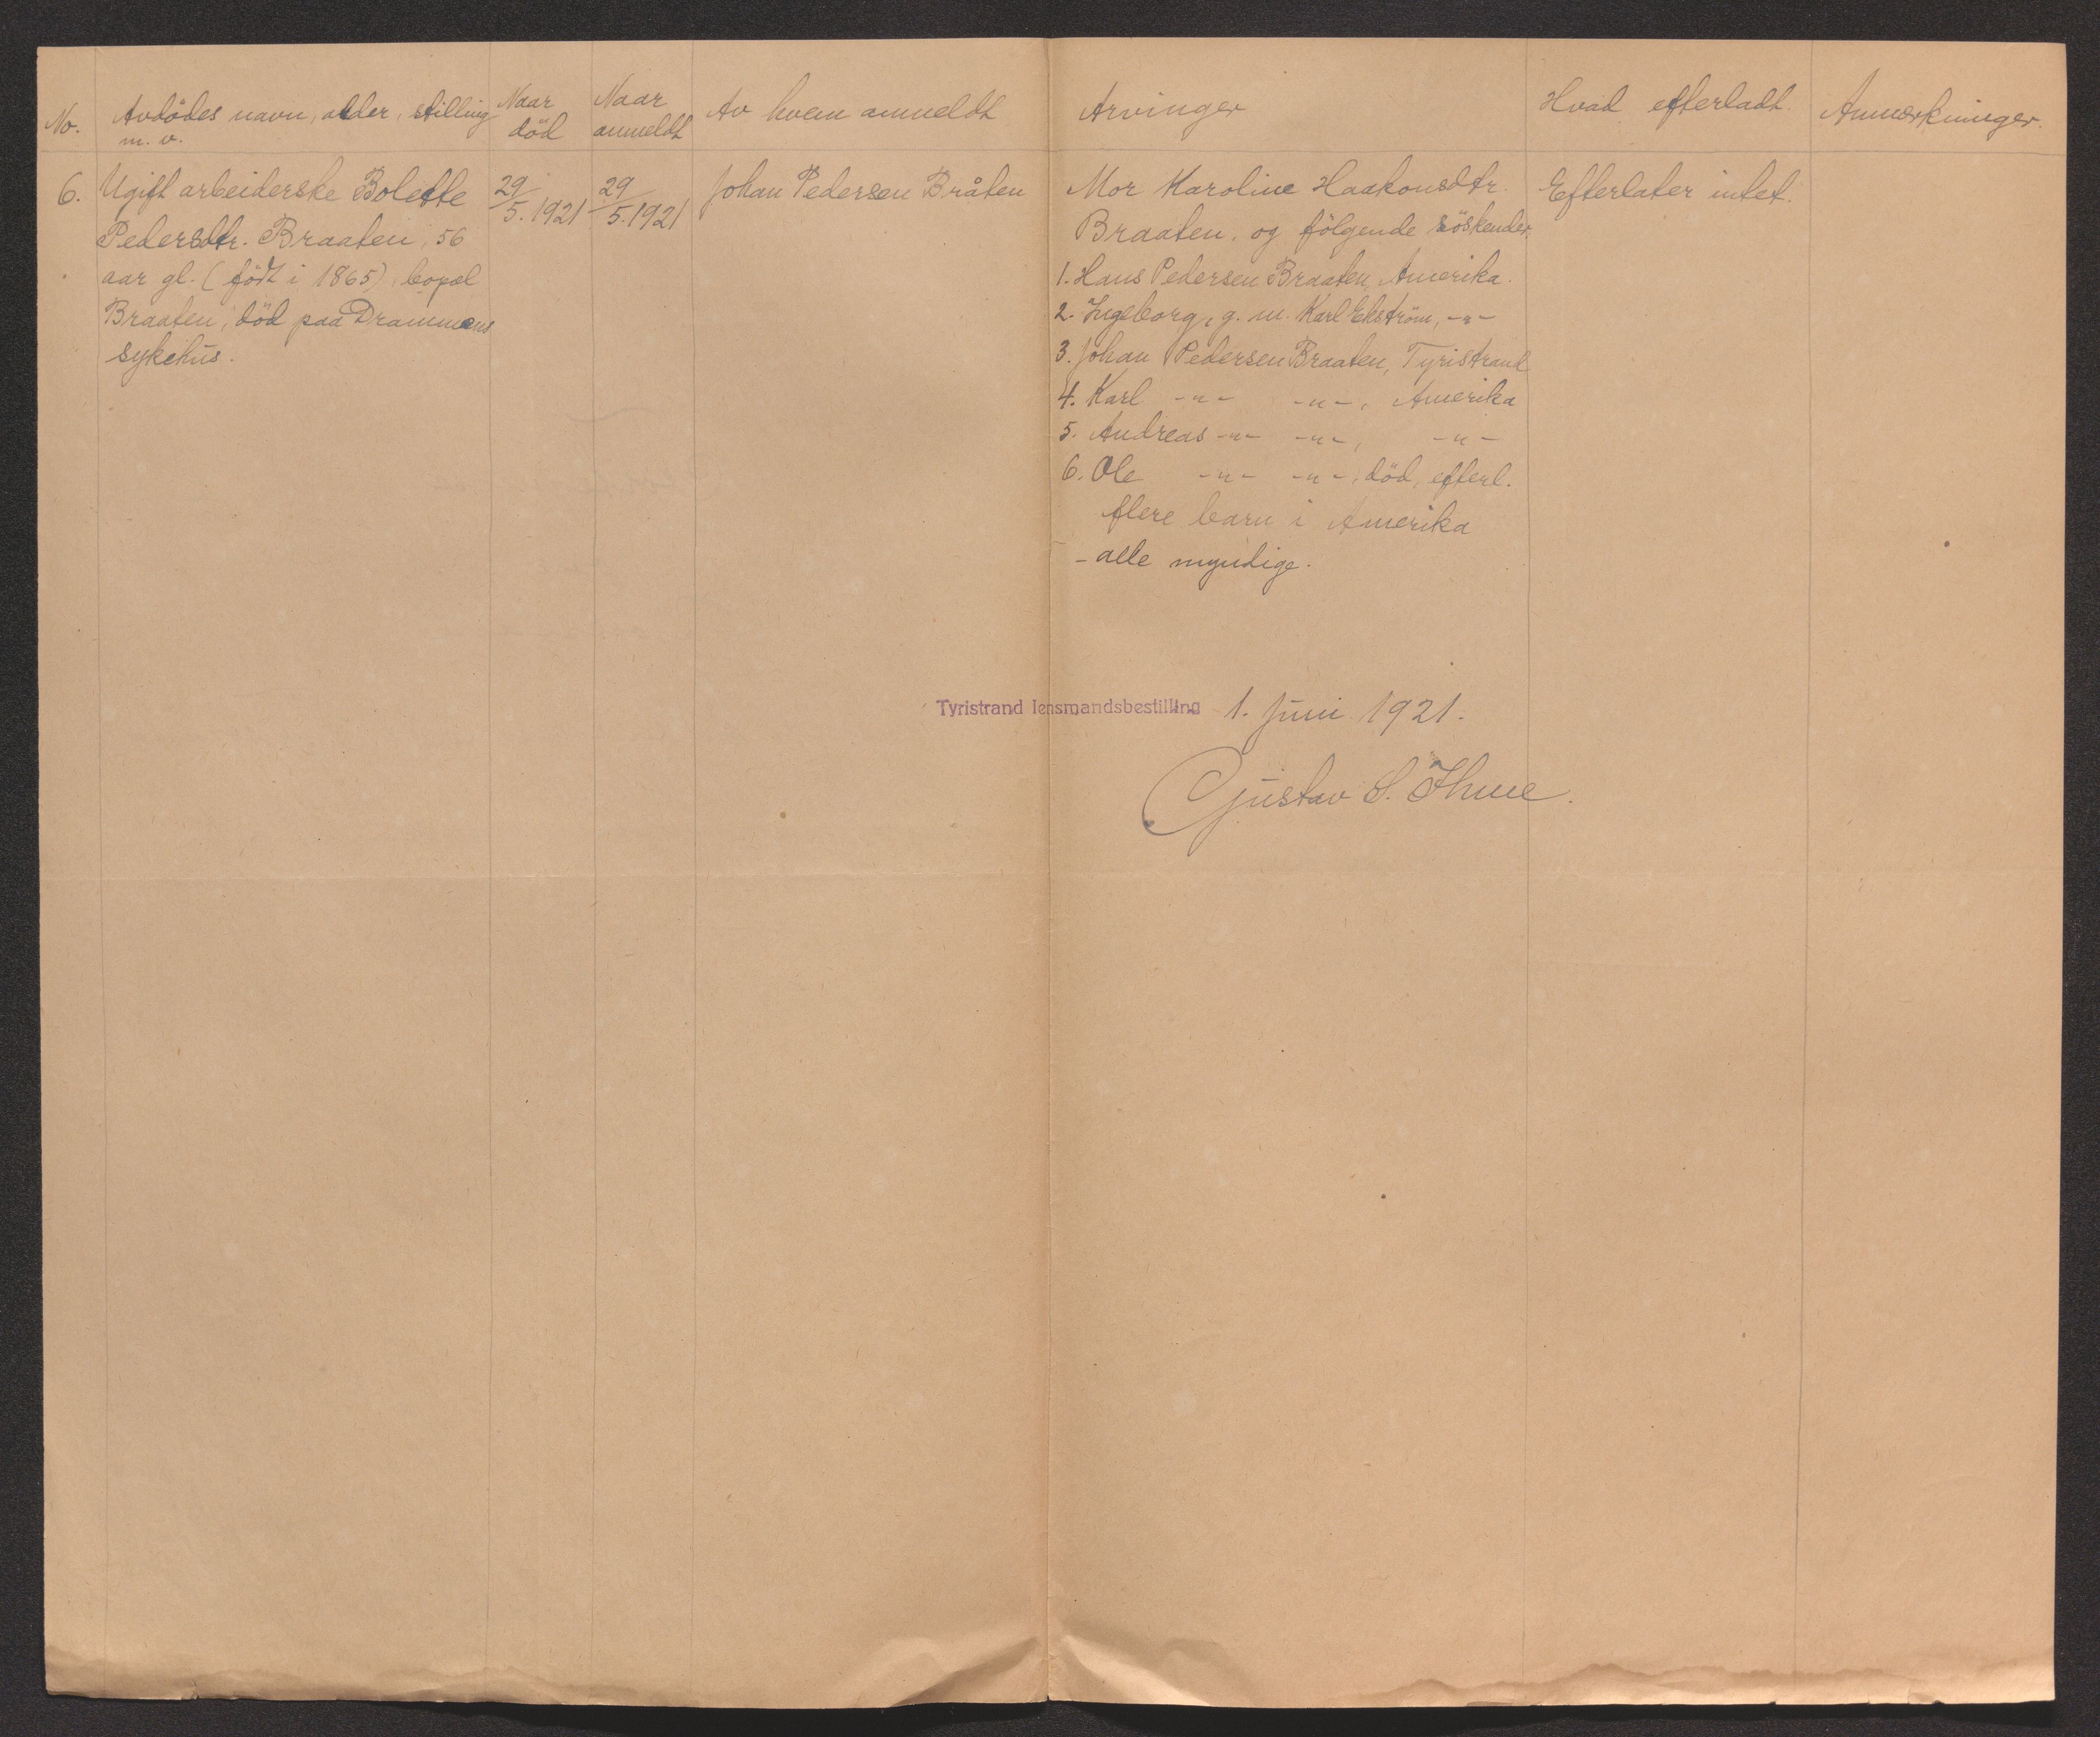 No.
Avdödes navn, alder, stilling
m. v.
Naar
död
Naar
anmeldt
Av hvem anmeldt
Arvinger
Hvad efterladt.
Anmærkninger.
6.
Ugift arbeiderske Bolette
Pedersdtr. Braaten, 56
aar gl. (födt i 1865), bopæl
Braaten, död paa Drammens
sykehus.
29/5. 1921
29/5. 1921
Johan Pedersen Bråten
Mor Karoline Haakonsdtr.
Braaten, og fölgende söskender.
1. Hans Pedersen Braaten, Amerika.
2. Ingeborg, g. m. Karl Ekström, -"-
3. Johan Pedersen Braaten, Tyristrand
4. Karl -"- -"-, Amerika
5. Andreas -"- -"-, -"-
6. Ole -"- -"-, död, efterl.
flere barn i Amerika
- alle myndige.
Efterlater intet.
Tyristrand lensmandsbestilling 1. Juni 1921.
Gustav S. Ihme.